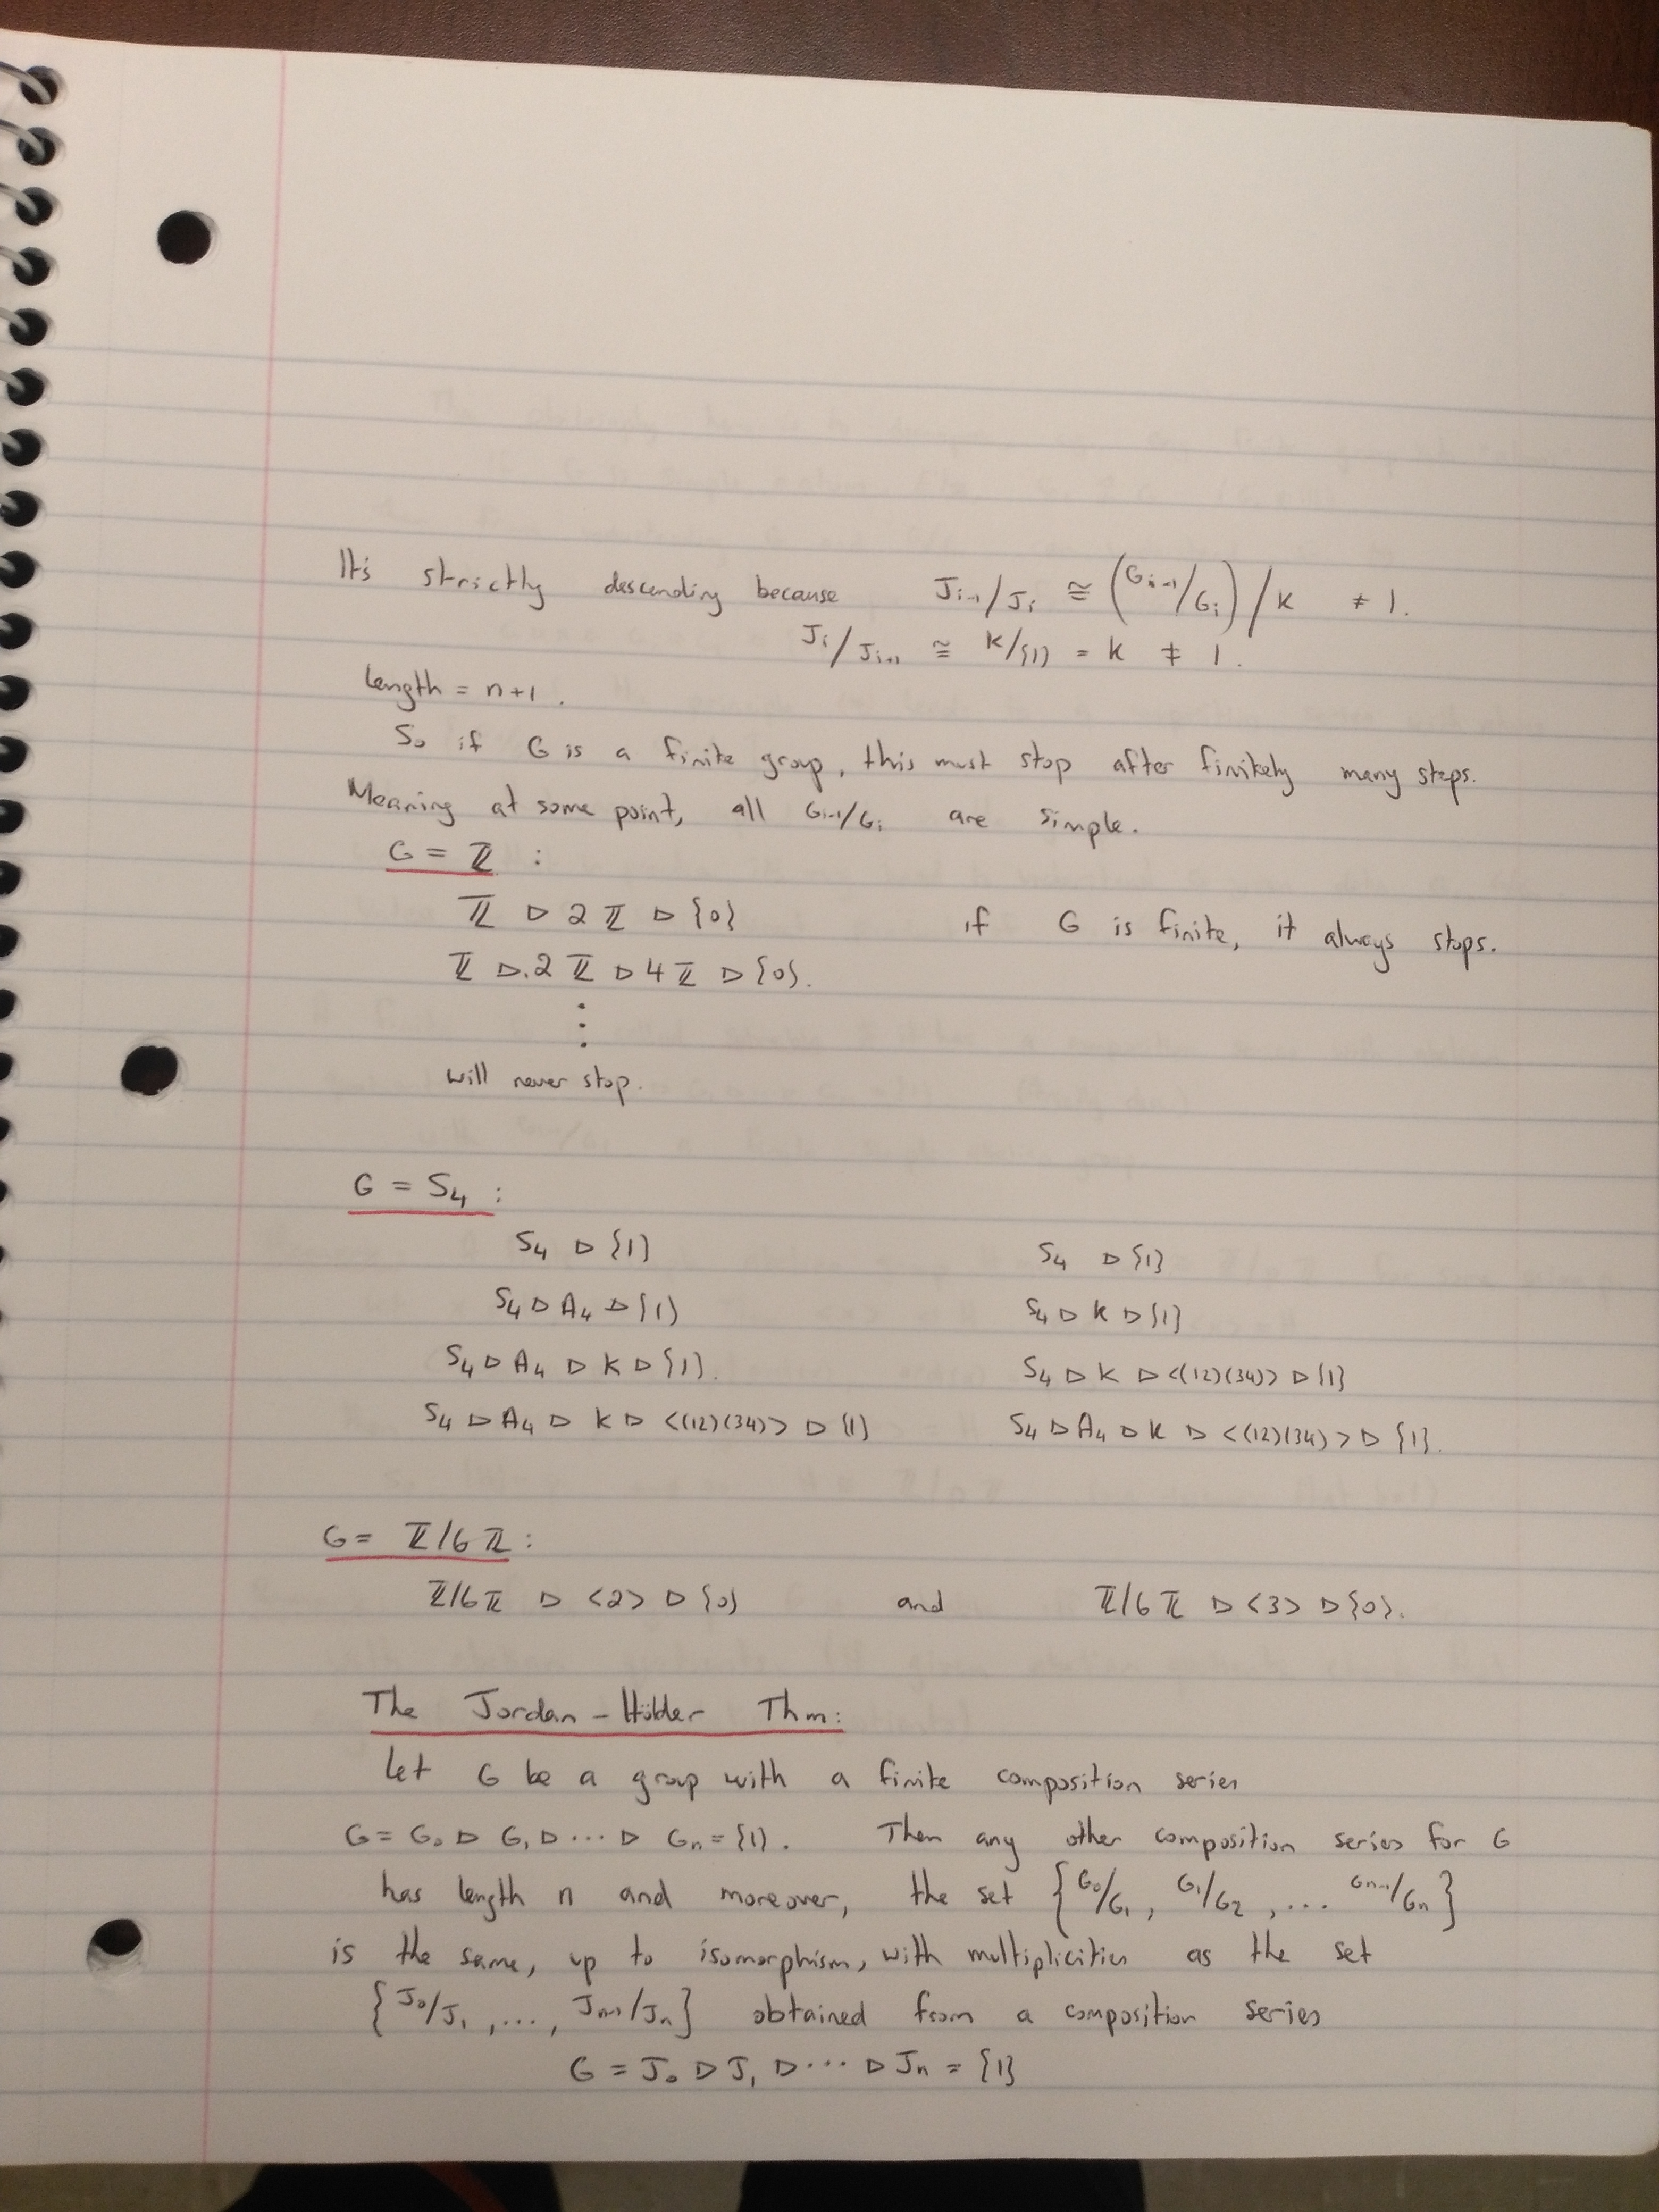 It's strictly descending because J_{i-1}/J_i ≅ (G_{i-1}/G_i)/K ≠ 1.
J_i/J_{i+1} ≅ K/{1} = K ≠ 1.
length = n+1.
So if G is a finite group, this must stop after finitely many steps.
Meaning at some point, all G_{i-1}/G_i are simple.
G = ℤ :
ℤ ▷ 2ℤ ▷ {0} if G is finite, it always stops.
ℤ ▷ 2ℤ ▷ 4ℤ ▷ {0}.
⋮
will never stop.
G = S₄ :
S₄ ▷ {1} S₄ ▷ {1}
S₄ ▷ A₄ ▷ {1} S₄ ▷ K ▷ {1}
S₄ ▷ A₄ ▷ K ▷ {1}. S₄ ▷ K ▷ <(12)(34)> ▷ {1}
S₄ ▷ A₄ ▷ K ▷ <(12)(34)> ▷ {1} S₄ ▷ A₄ ▷ K ▷ <(12)(34)> ▷ {1}.
G = ℤ/6ℤ :
ℤ/6ℤ ▷ <2> ▷ {0} and ℤ/6ℤ ▷ <3> ▷ {0}.
The Jordan-Hölder Thm:
Let G be a group with a finite composition series
G = G₀ ▷ G₁ ▷ ⋯ ▷ Gₙ = {1}. Then any other composition series for G
has length n and moreover, the set {G₀/G₁, G₁/G₂, ... G_{n-1}/G_n}
is the same, up to isomorphism, with multiplicities as the set
{J₀/J₁, ..., J_{n-1}/J_n} obtained from a composition series
G = J₀ ▷ J₁ ▷ ⋯ ▷ Jₙ = {1}